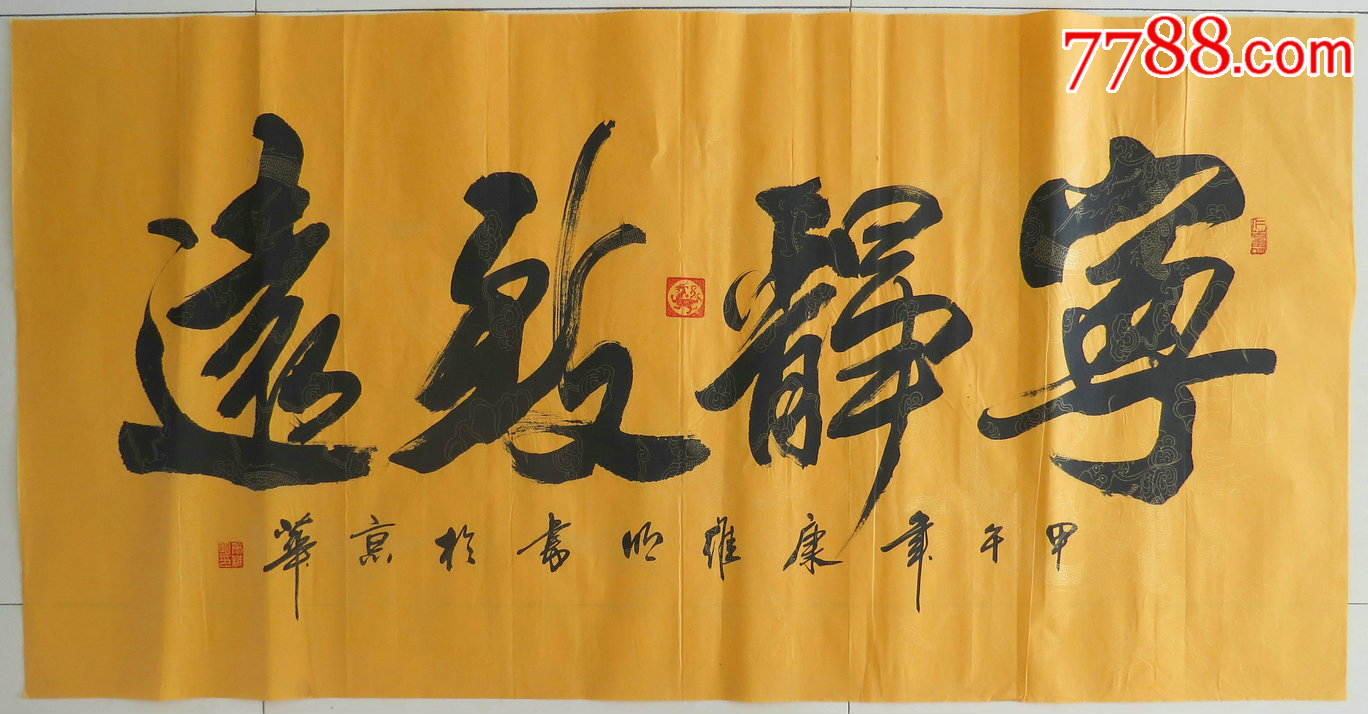 7788.com
寧靜致遠
甲午年康維明書於京華